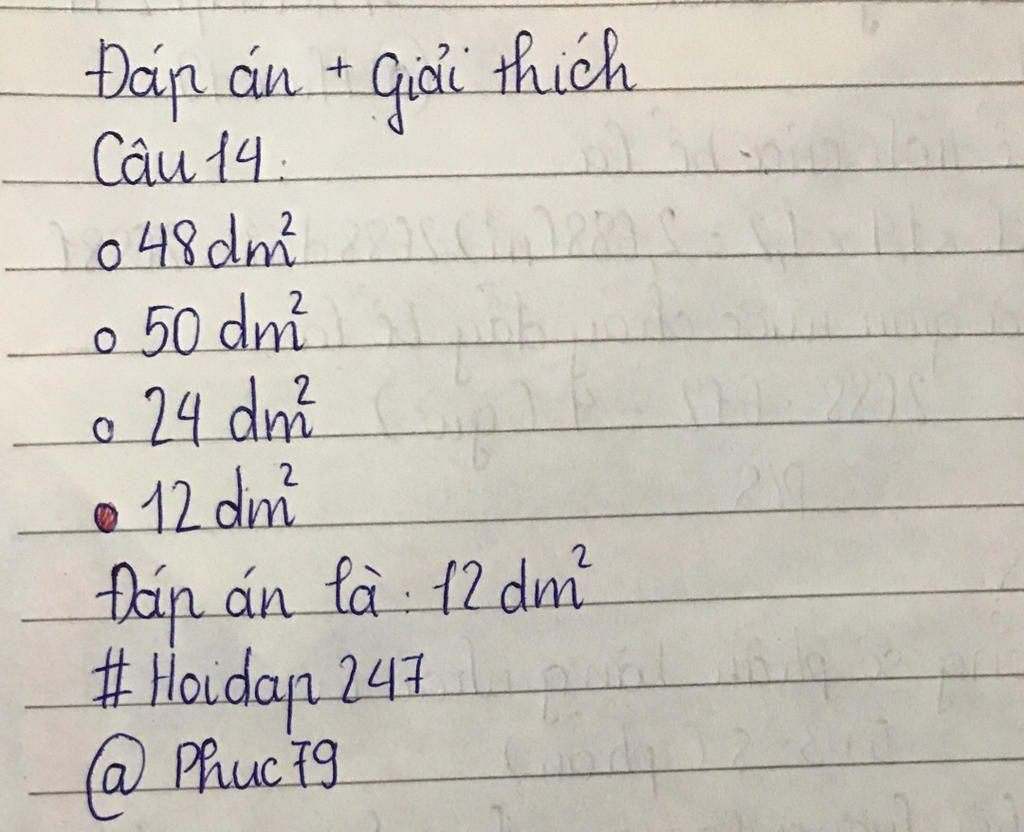 Đáp án + giải thích
Câu 14:
o 48 dm²
o 50 dm²
o 24 dm²
• 12 dm²
Đáp án là : 12 dm²
# Hoidap 247
@ Phuc79